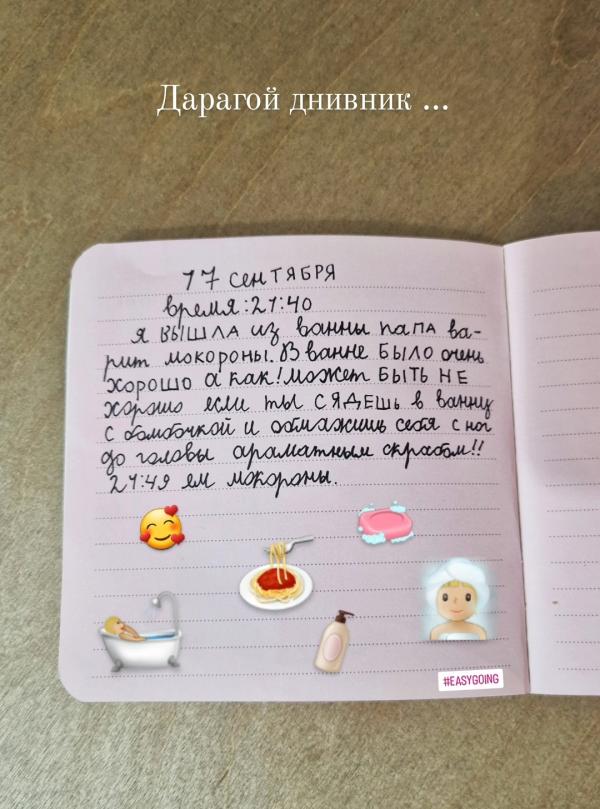 Дарагой днивник ...
17 сентября
время:21:40
я вышла из ванны папа ва-
рит мокороны. В ванне было очень
хорошо а как! может быть не
хорошо если ты сядешь в ванну
с бомбочкой и обмажишь себя с ног
до головы араматным скрабом!!
21:49 ем мокороны.
#EASYGOING